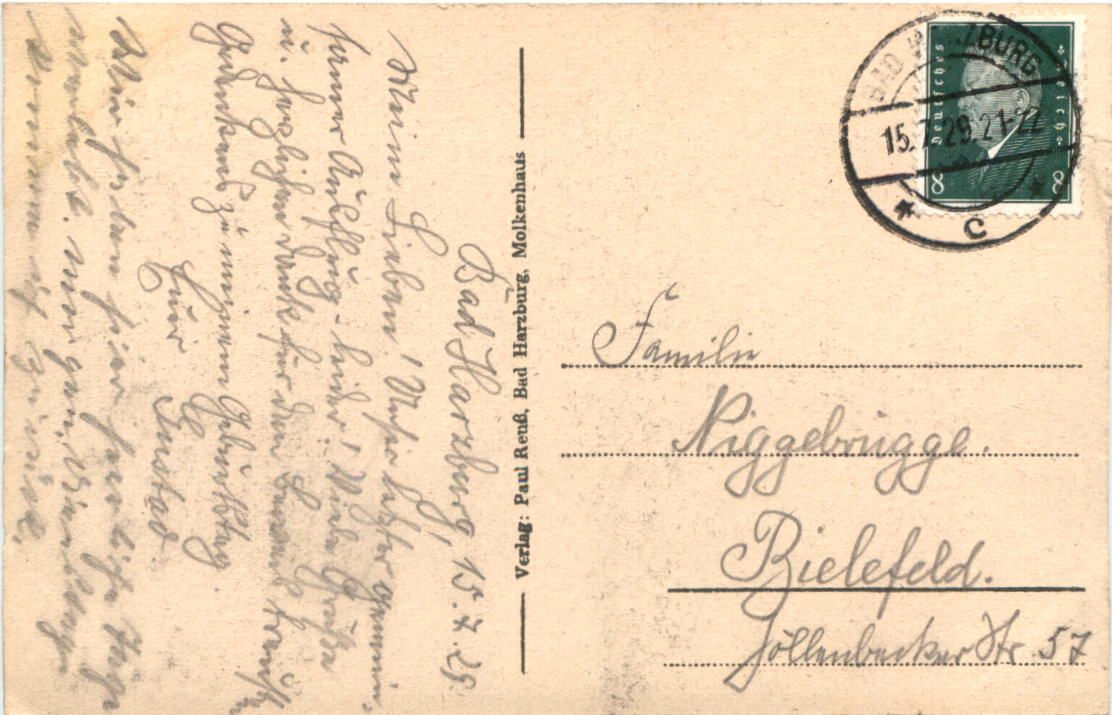 Bad Harzburg, 15.7.29.
Meine Lieben! Unser letzter gemein-
samer Ausflug - leider! Viele Grüße
u. herzlichen Dank für den
Gedenkens zu meinem Geburtstag.
Eure
Gustav
Wir haben hier herrliche Tage
verlebt. morgen, Dienstag
kommen wir zurück.
Verlag: Paul Reuß, Bad Harzburg, Molkenhaus
BAD HARZBURG
15.7.29.21-22
* C *
Deutsches Reich
8 8
Familie
Niggebrügge.
Bielefeld.
Jöllenbecker Str. 57